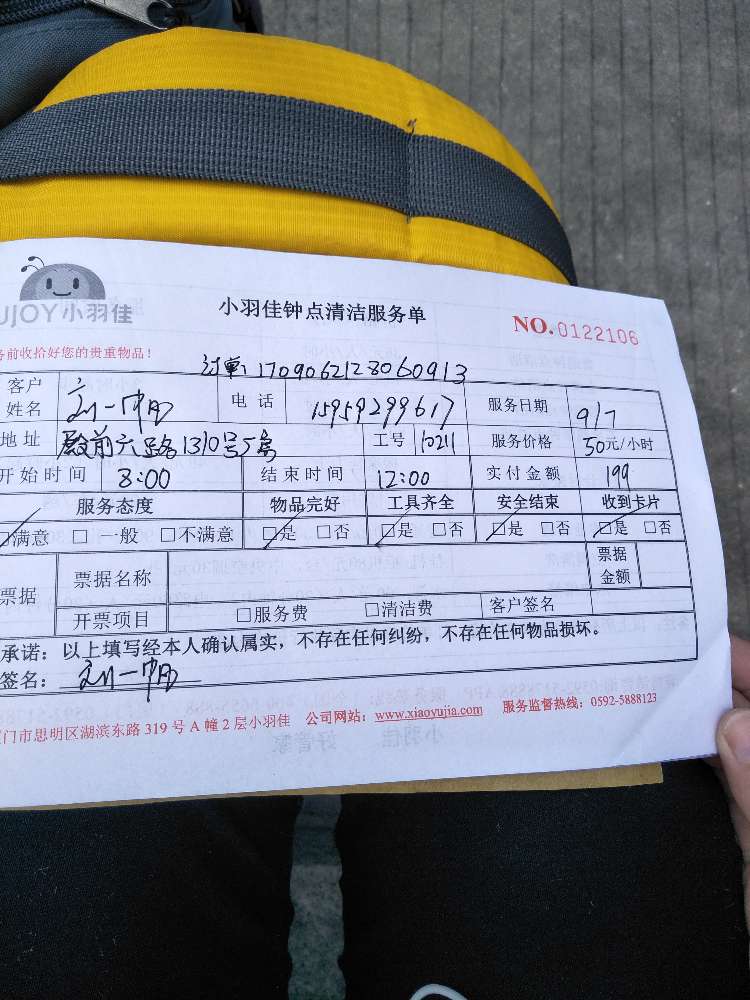 UJOY小羽佳
小羽佳钟点清洁服务单
NO.0122106
务前收拾好您的贵重物品！
订单：1709062128060913
客户姓名 刘一帆 电话 15959299617 服务日期 9/7
地址 殿前六路1310号5寓 工号 10211 服务价格 50元/小时
开始时间 8:00 结束时间 12:00 实付金额 199
服务态度 物品完好 工具齐全 安全结束 收到卡片
□满意 □一般 □不满意 □是 □否 □是 □否 □是 □否 □是 □否
票据 票据名称 票据金额
开票项目 □服务费 □清洁费 客户签名
承诺：以上填写经本人确认属实，不存在任何纠纷，不存在任何物品损坏。
签名：刘一帆
门市思明区湖滨东路319号A幢2层小羽佳 公司网站：www.xiaoyujia.com 服务监督热线：0592-5888123